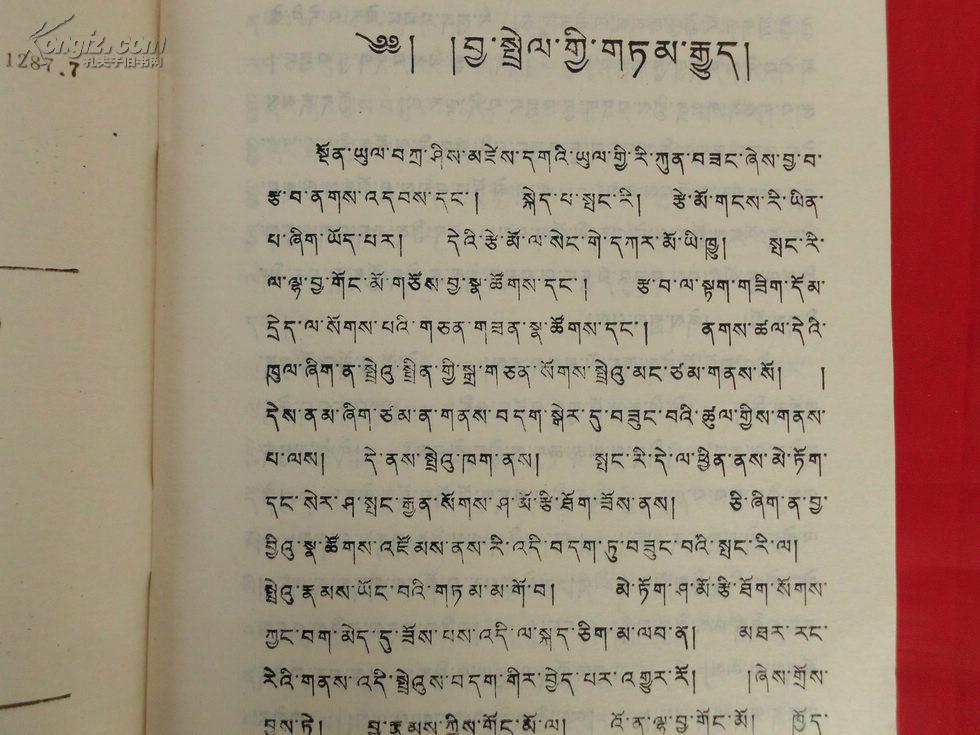 Kongfz.com
孔夫子旧书网
1287.7
༄༅། །བྱ་སྤྲེལ་གྱི་གཏམ་རྒྱུད།
སྔོན་ཡུལ་བཀྲ་ཤིས་མཛེས་དགའི་ཡུལ་གྱི་རི་ཀུན་བཟང་ཞེས་བྱ་བ་
རྩ་བ་ནགས་འདབས་དང་། སྐེད་པ་སྤང་རི། རྩེ་མོ་གངས་རི་ཡིན་
པ་ཞིག་ཡོད་པར། དེའི་རྩེ་མོ་ལ་སེང་གེ་དཀར་མོ་ཡི་ཁྱུ། སྤང་རི་
ལ་ལྷ་བྱ་གོང་མོ་གཙོས་བྱ་སྣ་ཚོགས་དང་། རྩ་བ་ལ་སྟག་གཟིག་དོམ་
དྲེད་ལ་སོགས་པའི་གཅན་གཟན་སྣ་ཚོགས་དང་། ནགས་ཚལ་དེའི་
ཁུལ་ཞིག་ན་སྤྲེའུ་སྤྲིན་གྱི་སྒྲ་གཅན་སོགས་སྤྲེའུ་མང་ཙམ་གནས་སོ། །
དེས་ནམ་ཞིག་ཙམ་ན་གནས་བདག་སྒེར་དུ་བཟུང་བའི་ཚུལ་གྱིས་གནས་
པ་ལས། དེ་ནས་སྤྲེའུ་ཁག་ནས། སྤང་རི་དེ་ལ་ཕྱིན་ནས་མེ་ཏོག་
དང་སེར་ཤ་སྤང་རྒྱན་སོགས་ཤ་མོ་རྩི་ཐོག་ཟོས་ནས། ཅི་ཞིག་ན་བྱ་
བྱིའུ་སྣ་ཚོགས་འཛོམས་ནས་རི་འདི་བདག་ཏུ་བཟུང་བའི་སྤང་རི་ལ།
སྤྲེའུ་རྣམས་ཡོང་བའི་གཏམ་མ་གོ་བ། མེ་ཏོག་ཤ་མོ་རྩི་ཐོག་སོགས་
ཀྱང་བག་མེད་དུ་ཟོས་པས་འདི་ལ་སྐད་ཅིག་མ་ལབ་ན། མཐར་རང་
རེའི་གནས་འདི་སྤྲེའུས་བདག་གིར་བྱེད་པར་འགྱུར་རོ། །ཞེས་གྲོས་
བྱས་ཏེ། བྱ་རྣམས་ཀྱིས་གོང་མོ་ལ། འོ་ན་ལྷ་བྱ་གོང་མོ། ཁྱོད་